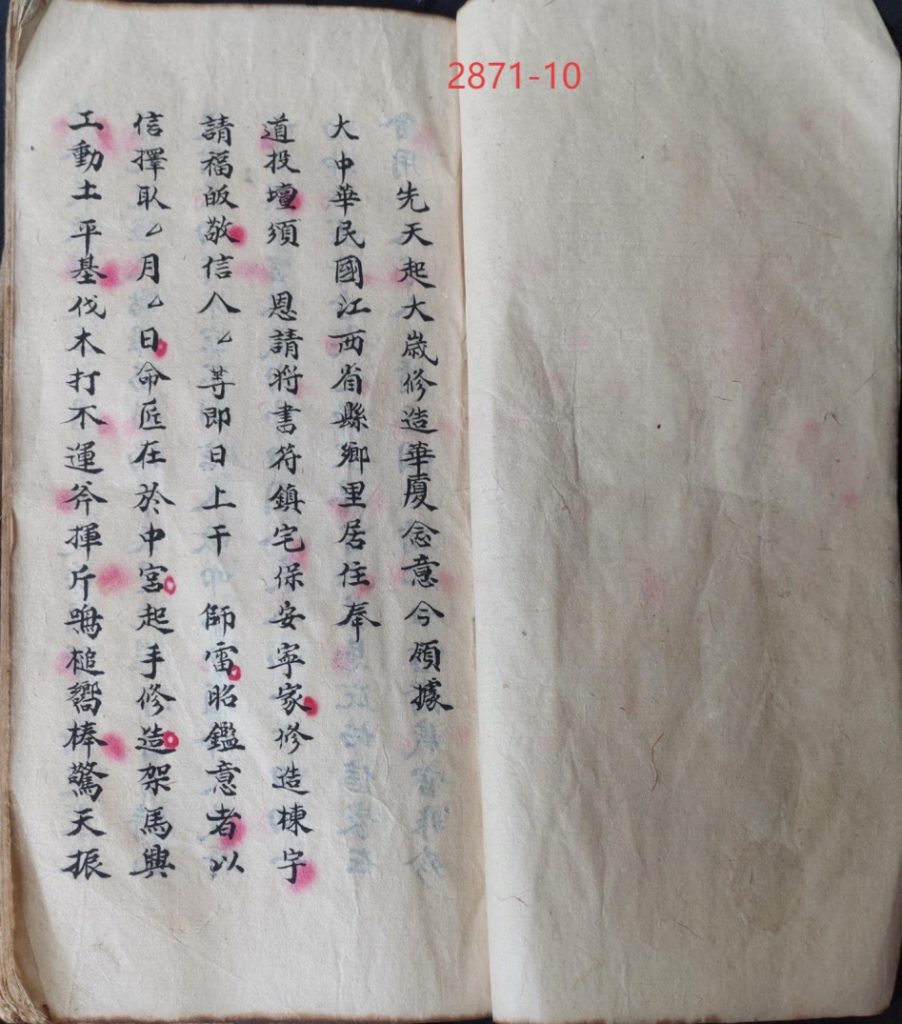 2871-10
先天起大歲修造華廈念意今領據
大中華民國江西省縣鄉里居住奉
道投壇須 恩請將書符鎮宅保安寧家修造棟宇
請福皈敬信人厶等即日上干 師雷昭鑑意者以
信擇取厶月厶日命匠在於中宮起手修造架馬興
工動土平基伐木打不運斧揮斤鳴槌嚮棒驚天振